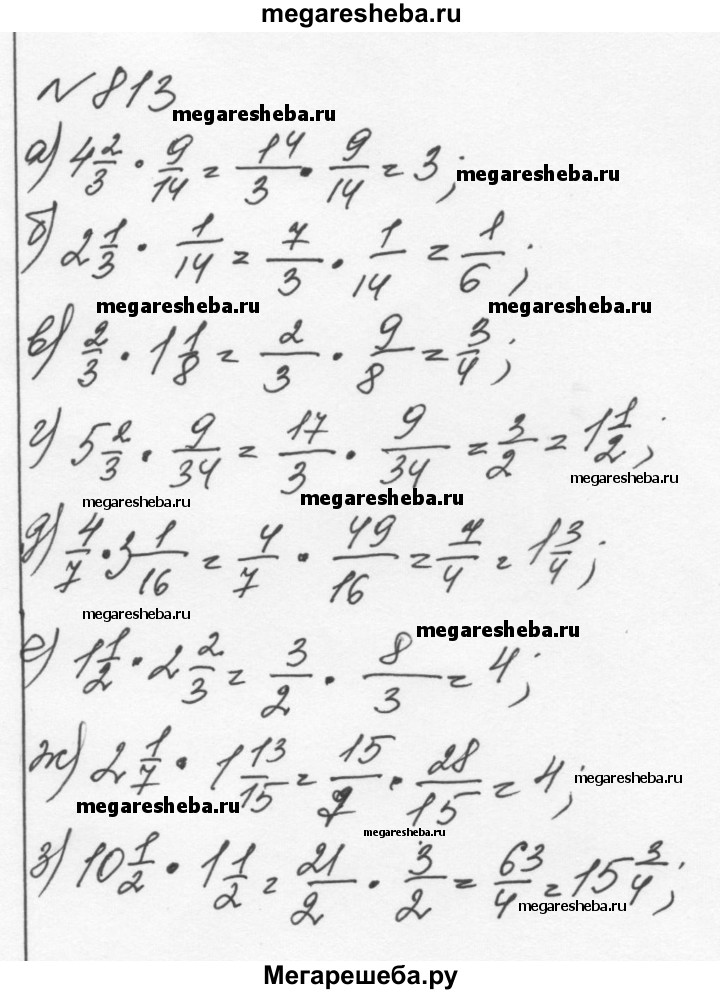 megaresheba.ru
№ 813
megaresheba.ru
а) 4 2/3 · 9/14 = 14/3 · 9/14 = 3;
megaresheba.ru
б) 2 1/3 · 1/14 = 7/3 · 1/14 = 1/6;
megaresheba.ru megaresheba.ru
в) 2/3 · 1 1/8 = 2/3 · 9/8 = 3/4;
г) 5 2/3 · 9/34 = 17/3 · 9/34 = 3/2 = 1 1/2;
megaresheba.ru
megaresheba.ru megaresheba.ru
д) 4/7 · 3 1/16 = 4/7 · 49/16 = 7/4 = 1 3/4;
megaresheba.ru
megaresheba.ru
е) 1 1/2 · 2 2/3 = 3/2 · 8/3 = 4;
ж) 2 1/7 · 1 13/15 = 15/7 · 28/15 = 4;
megaresheba.ru
megaresheba.ru
megaresheba.ru
з) 10 1/2 · 1 1/2 = 21/2 · 3/2 = 63/4 = 15 3/4;
megaresheba.ru
Мегарешеба.ру